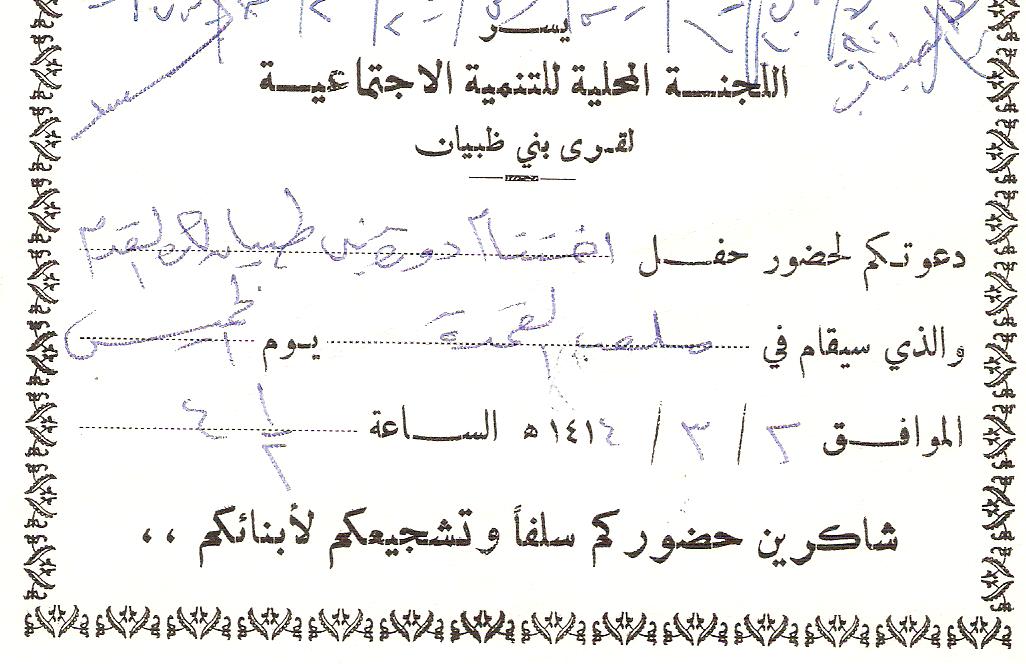 يسر
اللجنة المحلية للتنمية الاجتماعية
لقرى بني ظبيان
دعوتكم لحضور حفل اختتام دوري بني ظبيان لكرة القدم
والذي سيقام في ملعب القمة يوم الخميس
الموافق ٢ / ٣ / ١٤١٤ه الساعة ٤ ١/٢
شاكرين حضوركم سلفاً وتشجيعكم لأبنائكم ،،